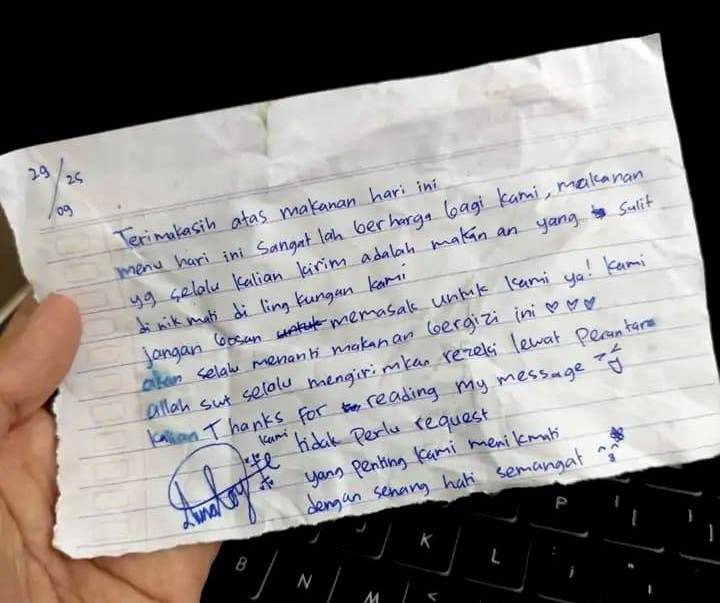 29/09 25
Terimakasih atas makanan hari ini
menu hari ini Sangat lah berharga bagi kami, makanan
yg selalu kalian kirim adalah makan an yang sulit
di nik mati di ling kungan kami
jangan bosan untuk memasak untuk kami ya! kami
akan selalu menanti makanan bergizi ini ♡♡♡
allah swt selalu mengirimkan rezeki lewat Perantara
kalian Thanks For reading my message
kami tidak Perlu request
yang penting kami menikmati
dengan senang hati semangat
B
N
M
K
L
P
<
:
;